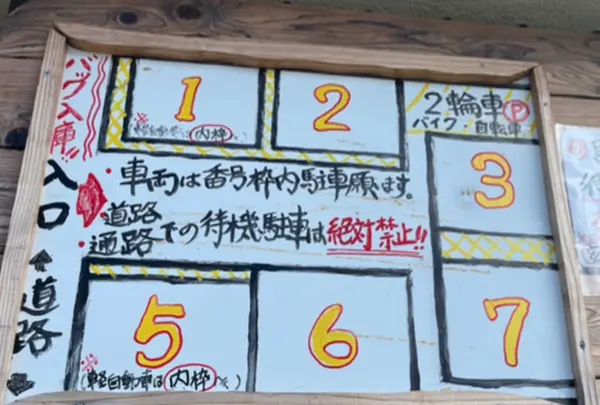 バック入庫!!
1
※軽自動車は内枠へ
2
2輪車 P
バイク・自転車
3
・車両は番号枠内駐車願ます。
入口
道路
・通路での待機駐車は絶対禁止!!
道路
5
※
(軽自動車は内枠へ)
6
7